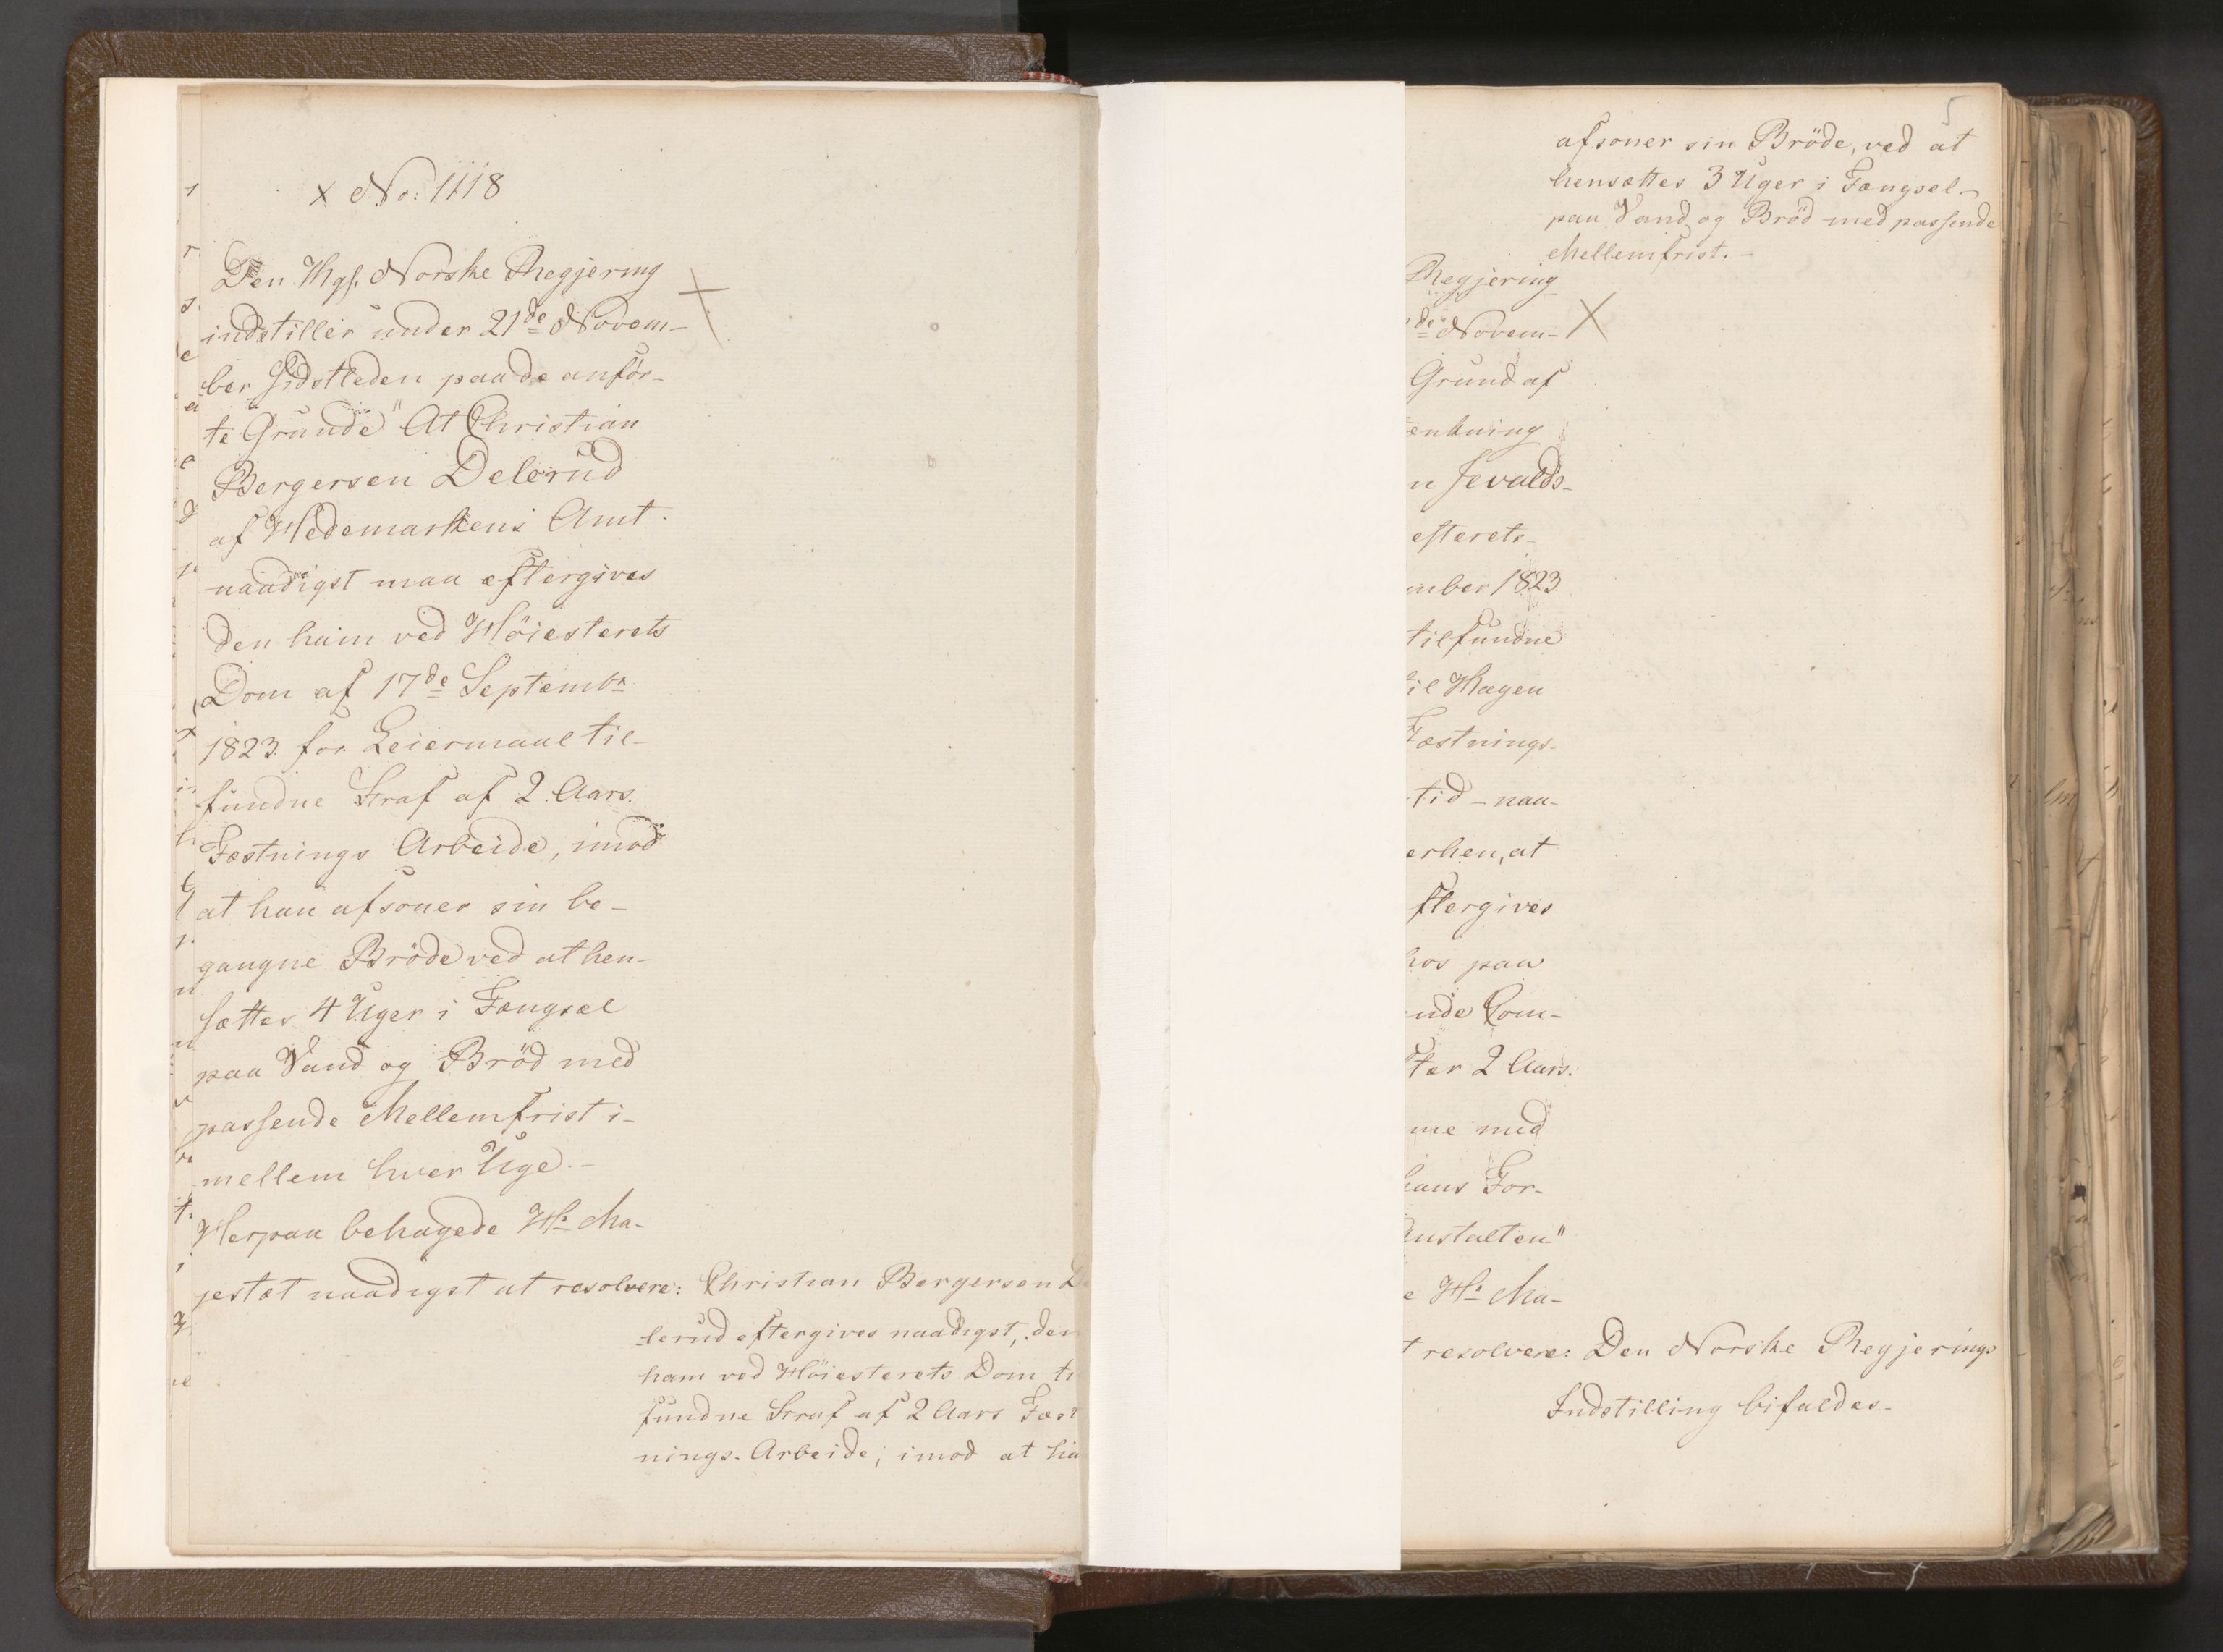 x No: 1118
Den Kgl. Norske Regjering
indstiller under 21de Novem-
ber sidstleden paa de anför-
te Grunde "At Christian
Bergersen Delerud
af Hedemarkens Amt
naadigst maa eftergives
den ham ved Höiesterets
Dom af 17de Septembr
1823 for Leiermaal til-
fundne Straf af 2 Aars
Fæstnings Arbeide, imod
at han afsoner sin be-
gangne Bröde ved at hen-
sættes 4 Uger i Fængsel
paa Vand og Bröd med
passende Mellemfrist i-
mellem hver Uge.-
Herpaa behagede Hs Ma-
jestæt naadigst at resolvere: Christian Bergersen
lerud eftergives naadigst, den
ham ved Höiesterets Dom
fundne Straf af 2 Aars Fæst
nings-Arbeide; imod at
5
afsoner sin Bröde, ved at
hensættes 3 Uger i Fængsel-
paa Vand og Bröd med passende
Mellemfrist.-
Regjering
de Novem-
Grund af
ænkning
n Sevalds-
esterets-
mber 1823
tilfundne
il Hagen
Fæstnings-
tid - naa-
erhen, at
ftergives
hos paa
nde Com-
ter 2 Aars.
me med
hans For-
Anstalten"
e Hs Ma-
t resolvere: Den Norske Regjerings
Indstilling bifaldes.-